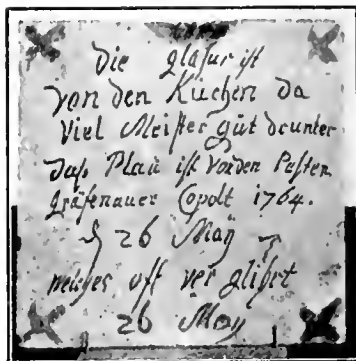 die glasur ist
von den Kuchen da
Viel Meister gut drunter
daß Plau ist vor den Pasten
gräfenauer Copolt 1764.
26 Maÿ
welches oft ver glihrt
26 Maÿ